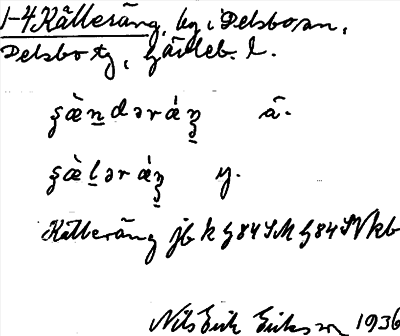 1-4 Källeräng, by i Delsbo sn,
Delsbo tg, Gävleb. l.
ʂæ̀n̲dəráŋ̲ ä.
ʂæ̀l̲əráŋ̲ y.
Källeräng jb k
Nils Erik Eriksson 1936